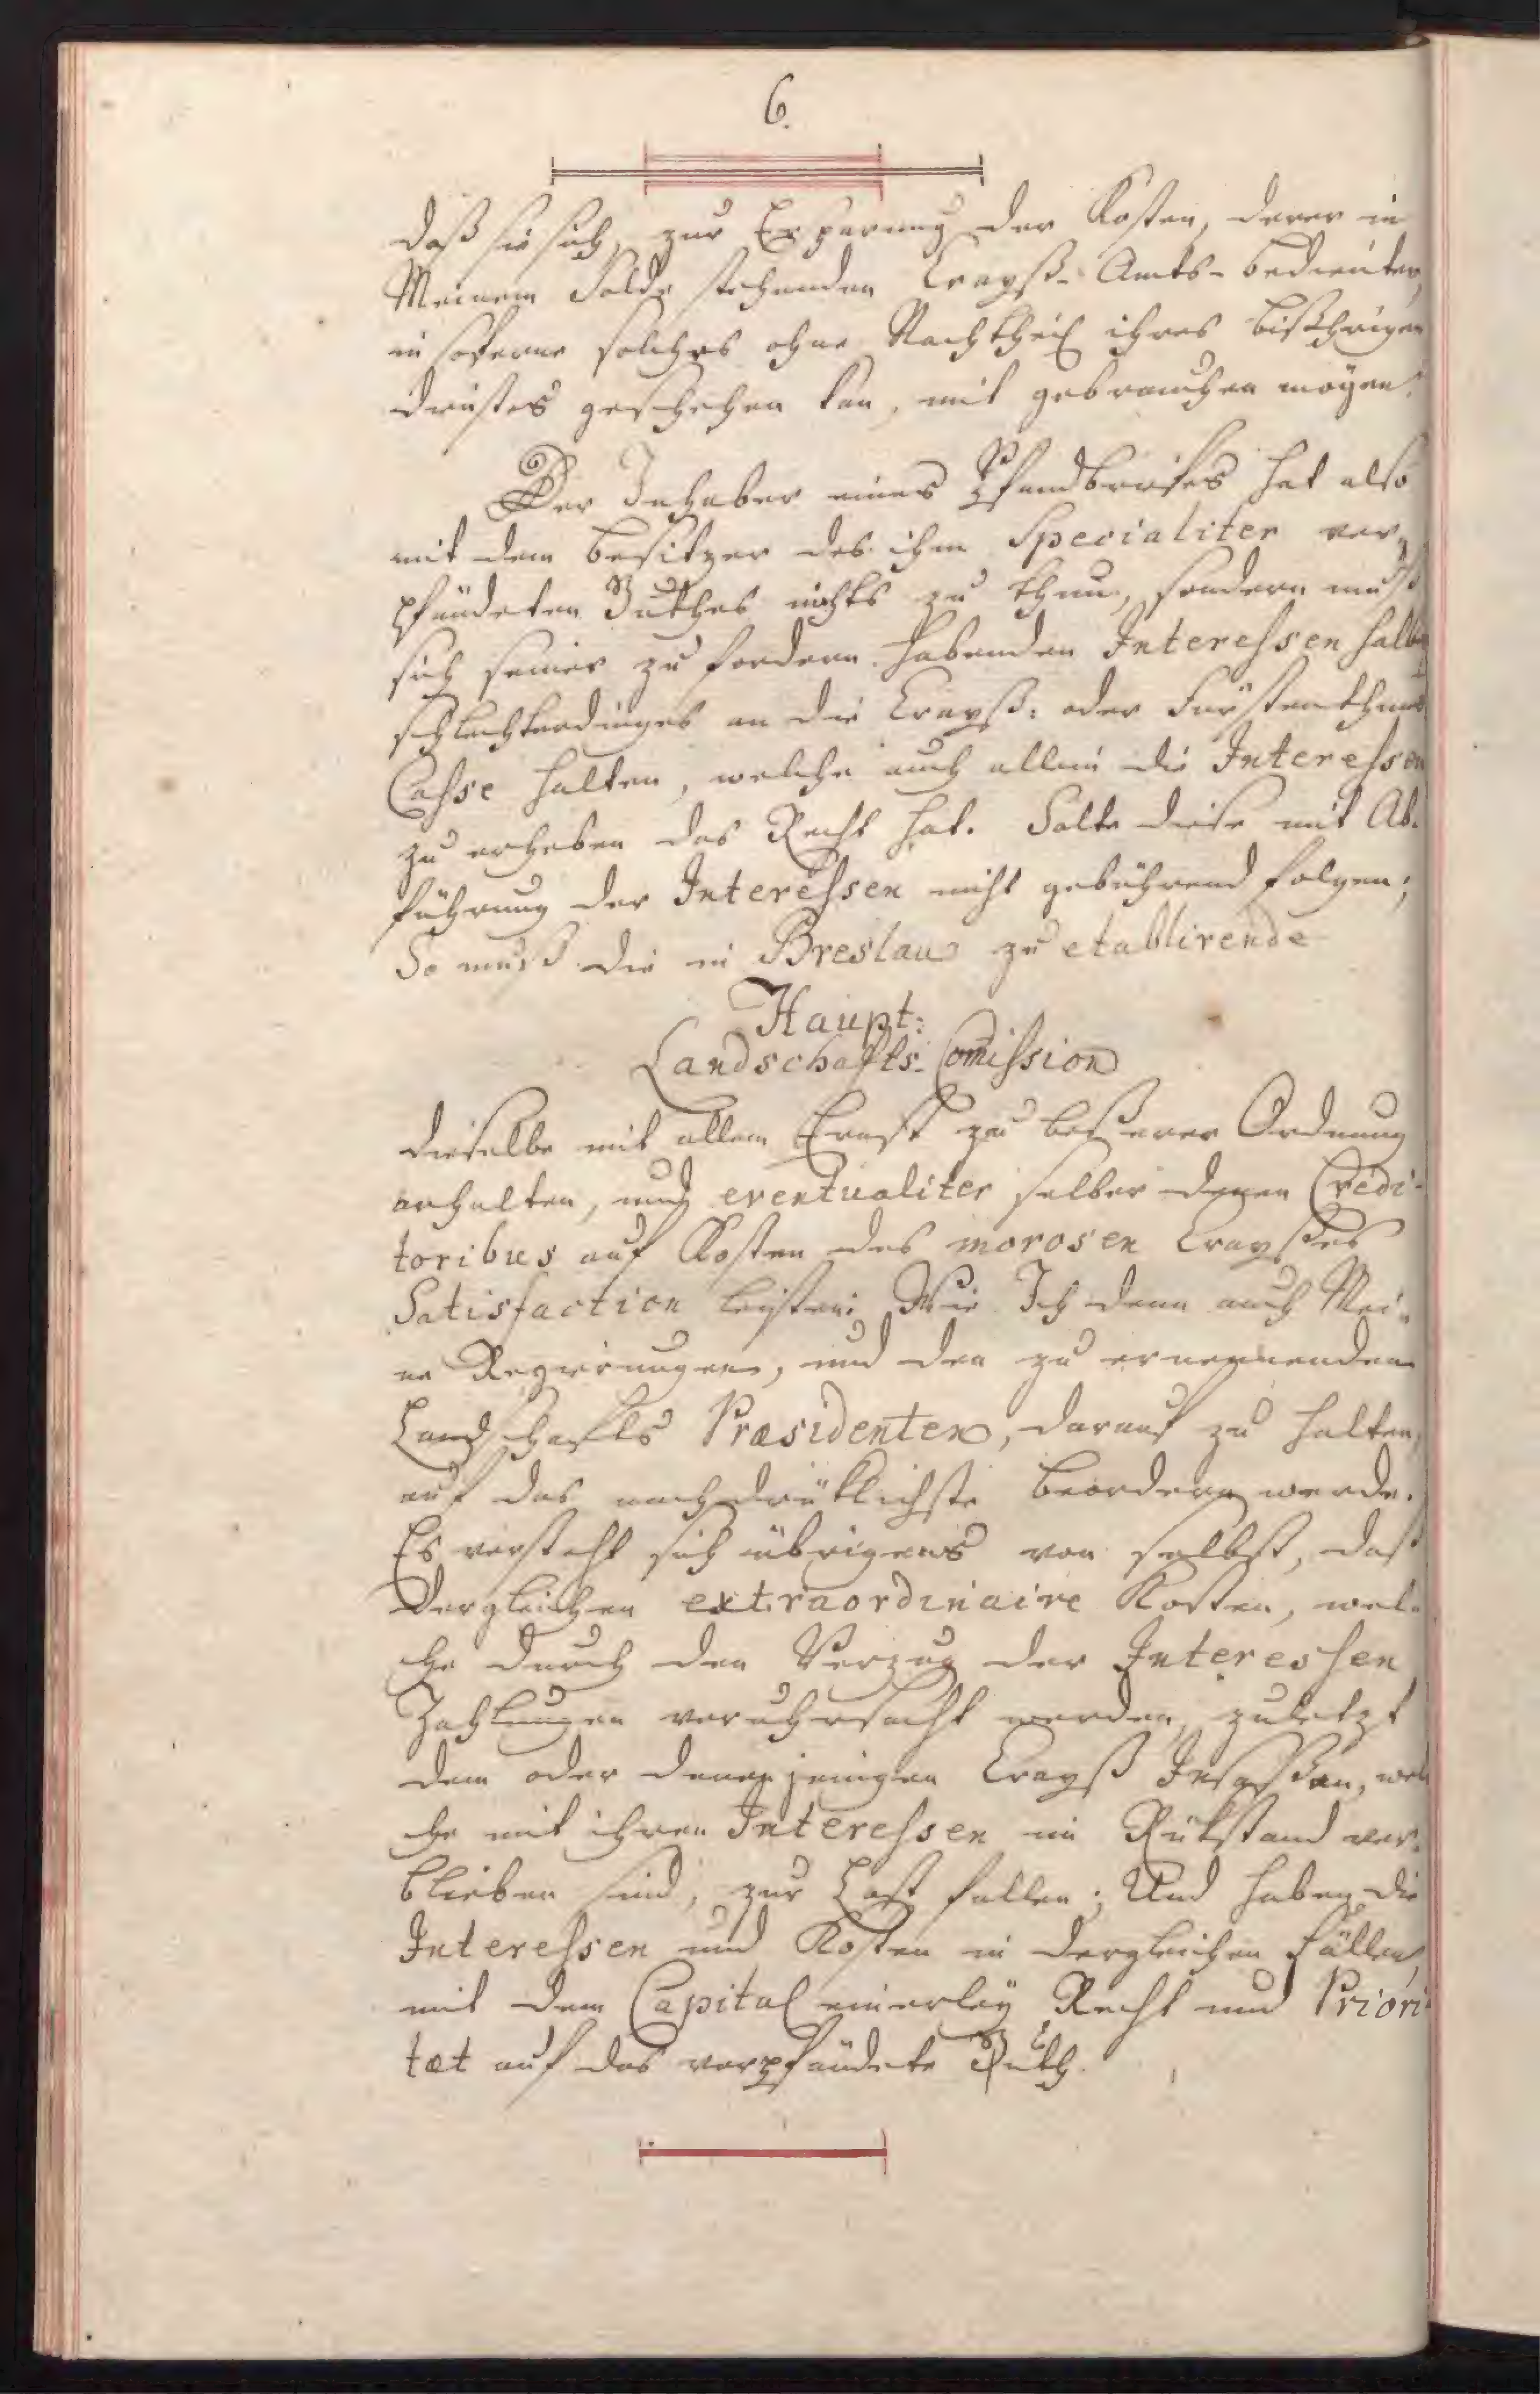 6.
daß sie sich, zur Ersparung der Kosten, derer in
Meinem Solde stehenden Crayß-Amts-bedienten,
in soferne solches ohne Nachtheil ihres bißherigen
dienstes geschehen kan, mit gebrauchen mögen.
Der Inhaber eines Pfandbriefes hat also
mit dem besitzer des ihm Specialiter ver-
pfändeten Guthes nichts zu thun, sondern muß
sich seiner zu fordern habenden Interessen halber
schlechterdinges an die Crayß- oder Fürstenthums
Casse halten, welche auch allein die Interessen
zu erheben das Recht hat. Solte diese mit Ab-
führung der Interessen nicht gebührend folgen;
So muß die in Breslau zu etablirende
Haupt-
Landschafts-Com̄ission
dieselbe mit allem Ernst zu beßerer Ordnung
anhalten, auch eventualiter selber denen Credi-
toribus auf Kosten des morosen Crayßes
Satisfaction leisten; Wie Ich denn auch Mei-
ne Regierungen, und den zu ernennenden
Landschafts Præsidenten, darauf zu halten,
auf das nachdrüklichste beordern werde.
Es versteht sich übrigens von selbst, daß
dergleichen extraordinaire Kosten, wel-
che durch den Verzug der Interessen
Zahlungen veruhrsacht werden, zuletzt
dem oder denenjenigen Crayß Insaßen, wel-
che mit ihren Interessen im Rükstand ver-
blieben sind, zur Last fallen; Und haben die
Interessen und Kosten in dergleichen Fällen,
mit dem Capital einerley Recht und Priori-
tæt auf das verpfändete Guth.